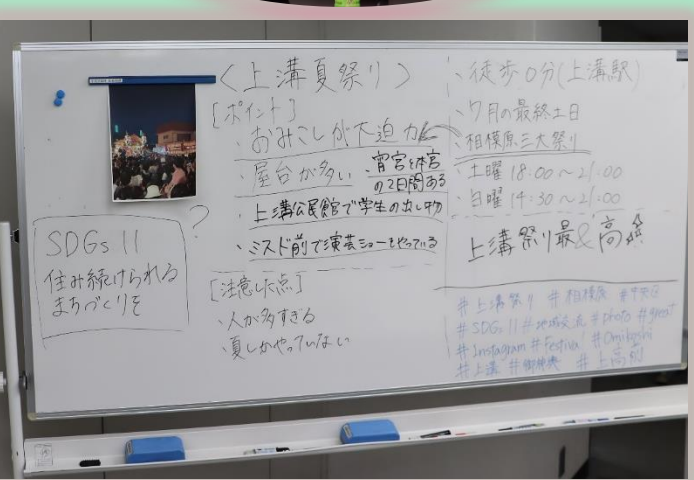 <上溝夏祭り>
[ポイント]
・おみこしが大迫力
・屋台が多い
宵宮と本宮
の2日間ある
・上溝公民館で学生の出し物
・ミスド前で演芸ショーをやっている
?
SDGs 11
住み続けられる
まちづくりを
[注意した点]
・人が多すぎる
・夏しかやっていない
・徒歩0分(上溝駅)
・7月の最終土日
・相模原三大祭り
・土曜 18:00~21:00
・日曜 14:30~21:00
上溝祭り最&高
#上溝祭り #相模原 #中央区
#SDGs 11 #地域交流 #photo #great
#Instagram #Festival #Omikoshi
#上溝 #御神輿 #上高前